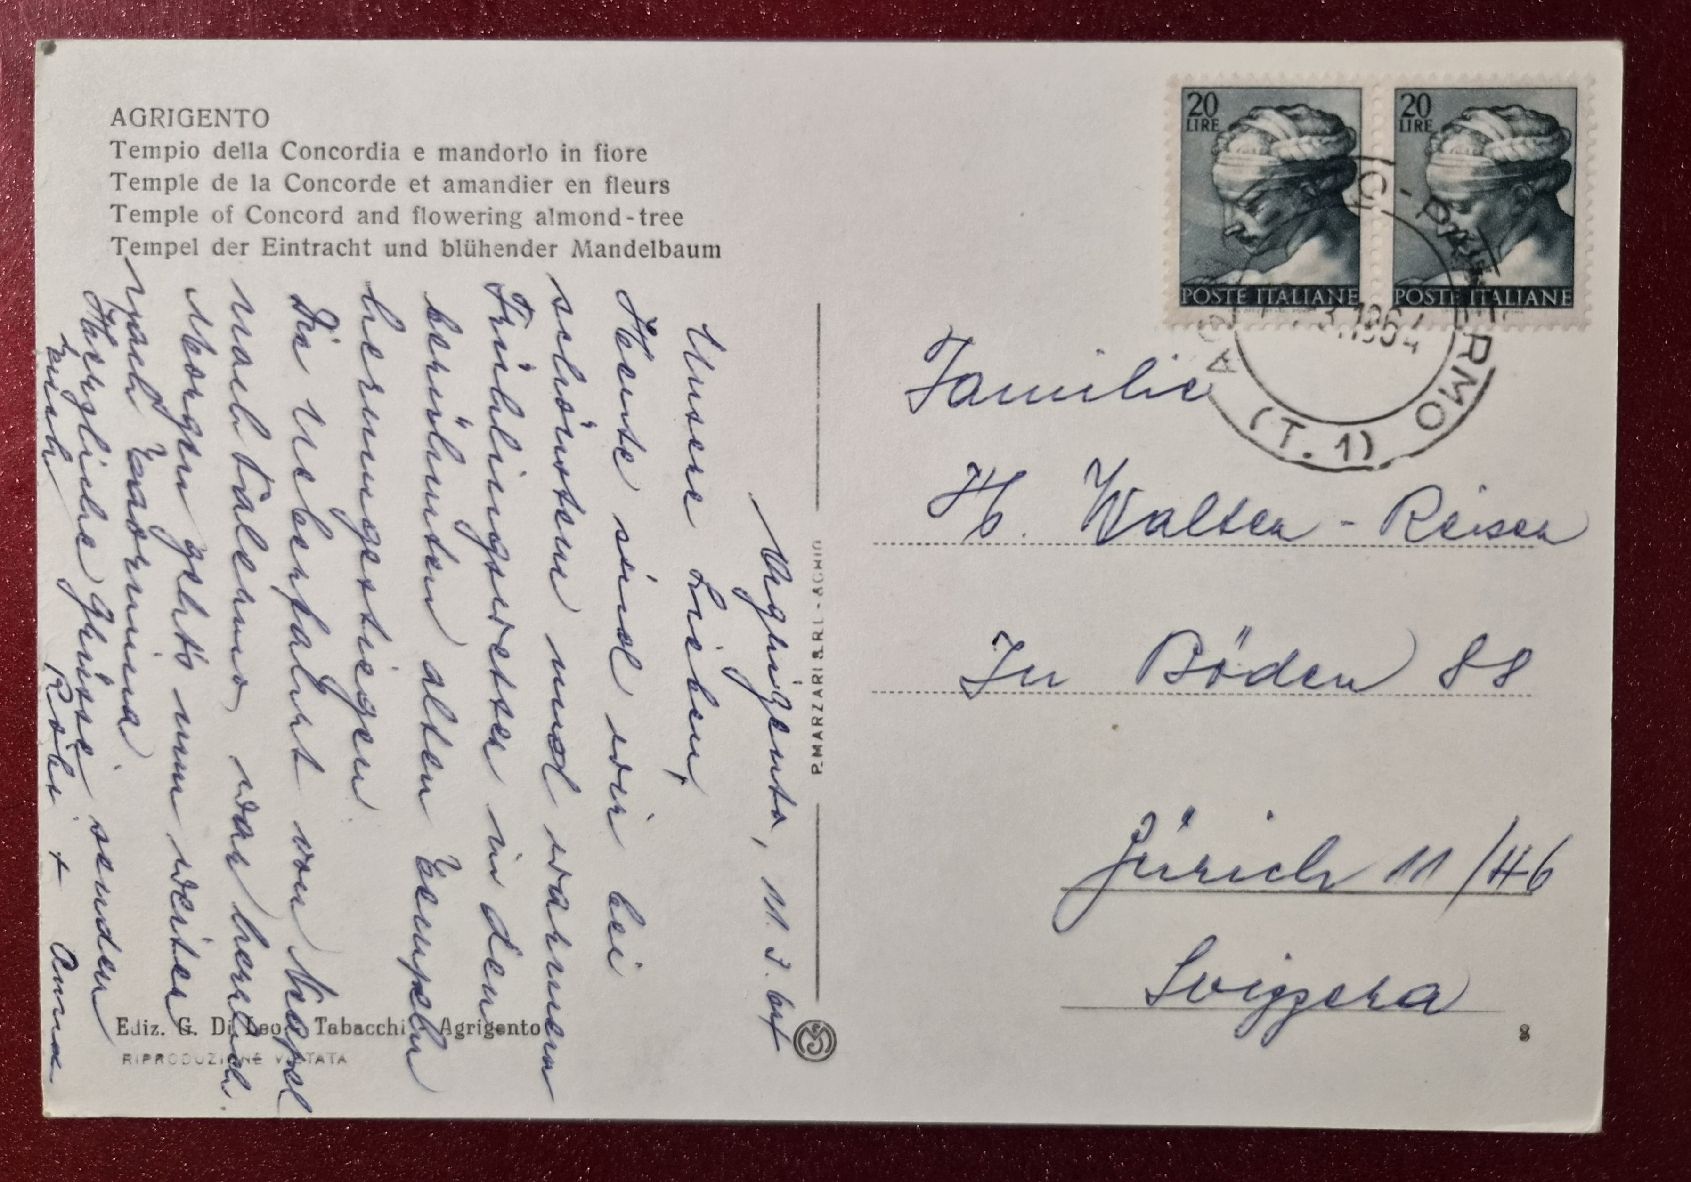 AGRIGENTO
Tempio della Concordia e mandorlo in fiore
Temple de la Concorde et amandier en fleurs
Temple of Concord and flowering almond-tree
Tempel der Eintracht und blühender Mandelbaum
Agrigento, 11. 3. 64
Unsere Lieben,
Heute sind wir bei
schönstem und warmem
Frühlingswetter in den
berühmten alten Tempeln
herumgestiegen.
Die Ueberfahrt von Neapel
nach Palermo war herrlich.
Morgen geht's nun weiter
nach Taormina
Herzliche Grüsse senden
Euch Röbi + Anna
Ediz. G. Di Leo - Tabacchi - Agrigento
RIPRODUZIONE VIETATA
P. MARZARI S.R.L. - SCHIO
20
LIRE
POSTE ITALIANE
20
LIRE
POSTE ITALIANE
(T. 1)
Familie
Hs. Walter - Reiser
In Böden 88
Zürich 11/46
Svizzera
8